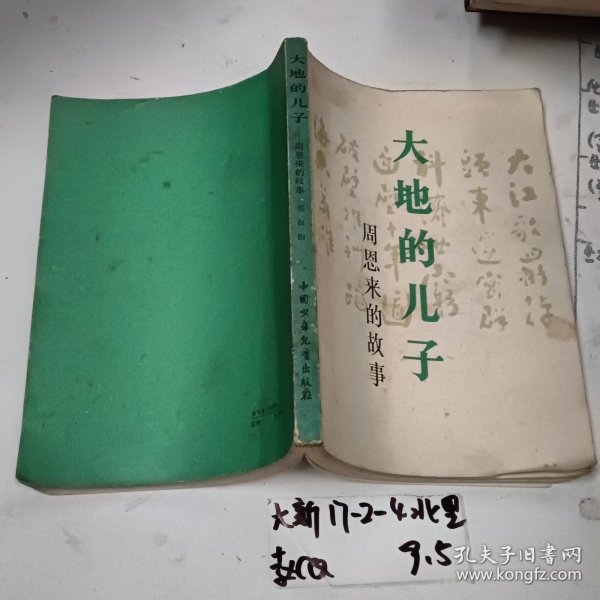 大地的儿子
周恩来的故事
大江歌罢掉
頭東邃密群
科濟世窮
面壁十年圖
破壁難酬蹈
海亦英雄
大地的儿子
周恩来的故事 苏叔阳
中国少年儿童出版社
大新 17-2-4北里
9.5
孔夫子旧书网
www.kongfz.com